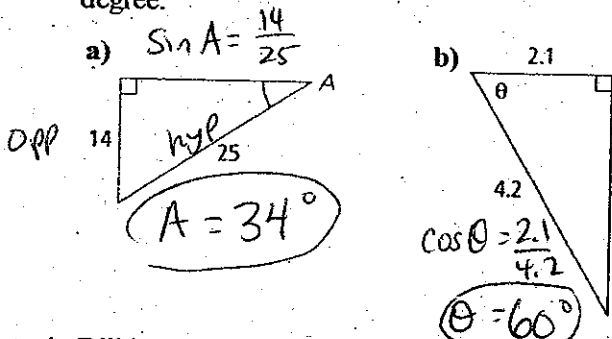 degree.
a) Sin A = 14/25
A
Opp 14
hyp
25
A = 34°
b) 2.1
θ
4.2
cos θ = 2.1/4.2
θ = 60°